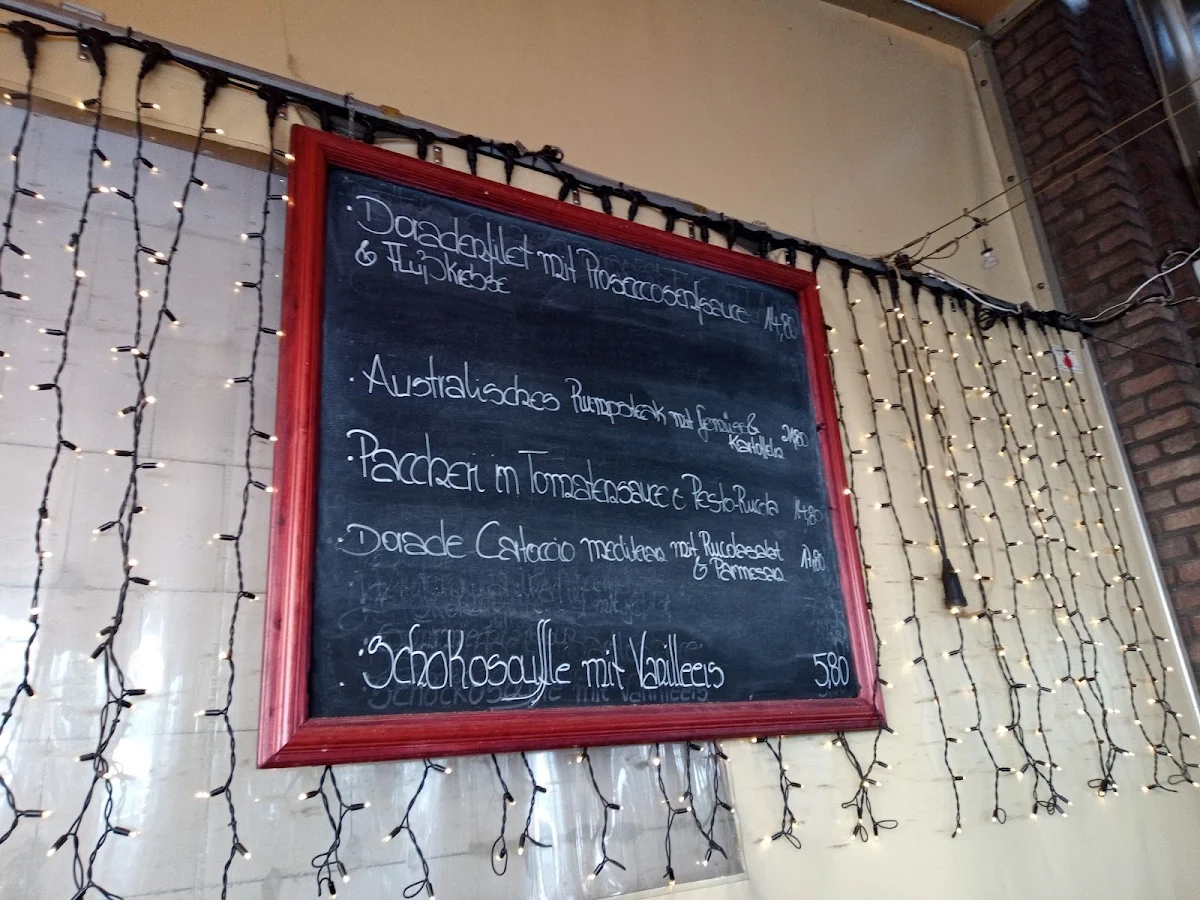 · Doradenfilet mit Proseccosenfsauce 14,80
& Flußkrebse
· Australisches Rumpsteak mit Gemüse &
Kartoffeln 21,80
· Paccheri in Tomatensauce & Pesto-Rucola 14,80
· Dorade Cartoccio mediterran mit Rucolasalat
& Parmesan
· Schokosouffle mit Vanilleeis 5,80